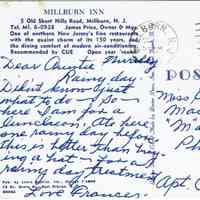 MILLBURN INN
5 Old Short Hills Road, Millburn, N. J.
Tel. Ml. 6-0928 James Price, Owner & Mgr.
One of northern New Jersey's fine restaurants
with the quaint charm of its 150 years, and
the dining comfort of modern air-conditioning.
Recommended by CUE Open year 'round
Dear Auntie
Rainy day
Didn't know just
what to do - So
here I am for a
luncheon. Ate here
one rainy day before
this is better than
ing a hat - For a
rainy day treatment
Love Frances
POS
Miss
Ma
Ph
Apt